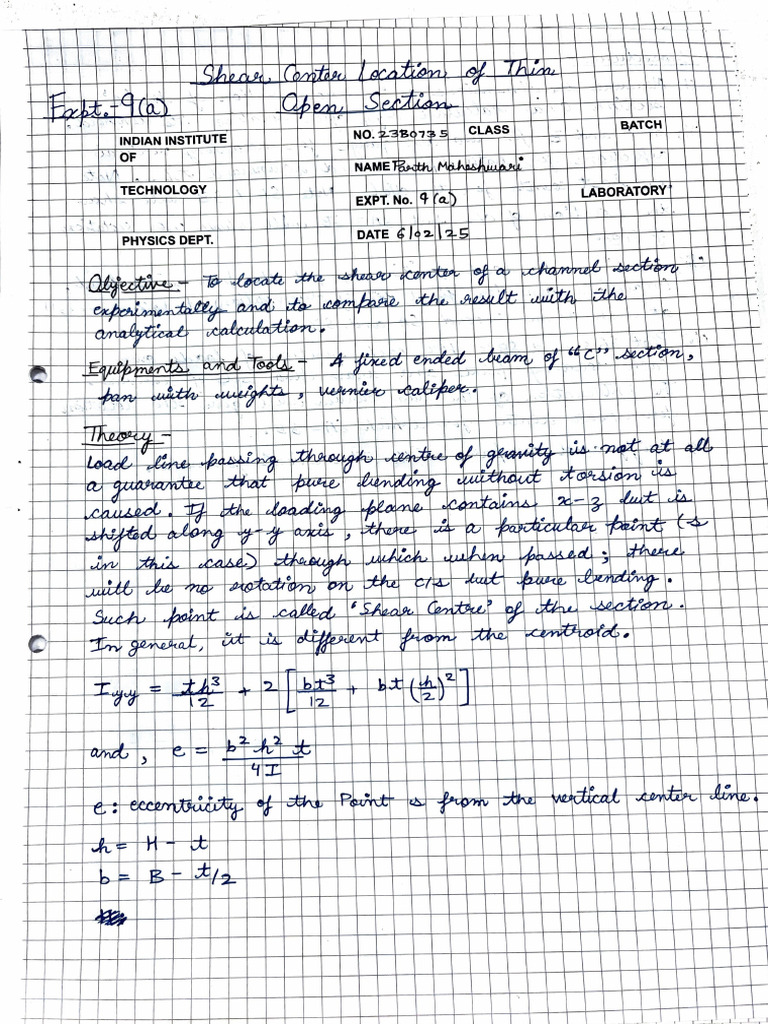 Shear Center Location of Thin
Expt.-9(a) Open Section
INDIAN INSTITUTE NO. 23B0735 CLASS BATCH
OF
NAME Parth Maheshwari
TECHNOLOGY EXPT. No. 9(a) LABORATORY
PHYSICS DEPT. DATE 6/02/25
Objective - To locate the shear center of a channel section
experimentally and to compare the result with the
analytical calculation.
Equipments and Tools - A fixed ended beam of "C" section,
pan with weights, vernier caliper.
Theory -
Load line passing through centre of gravity is not at all
a guarantee that pure bending without torsion is
caused. If the loading plane contains x-z but is
shifted along y-y axis, there is a particular point (s
in this case) through which when passed; there
will be no rotation on the c/s but pure bending.
Such point is called 'Shear Centre' of the section.
In general, it is different from the centroid.
Iyy = th³/12 + 2 [ bt³/12 + bt (h/2)² ]
and, e = b² h² t / 4I
e: eccentricity of the Point is from the vertical center line.
h = H - t
b = B - t/2